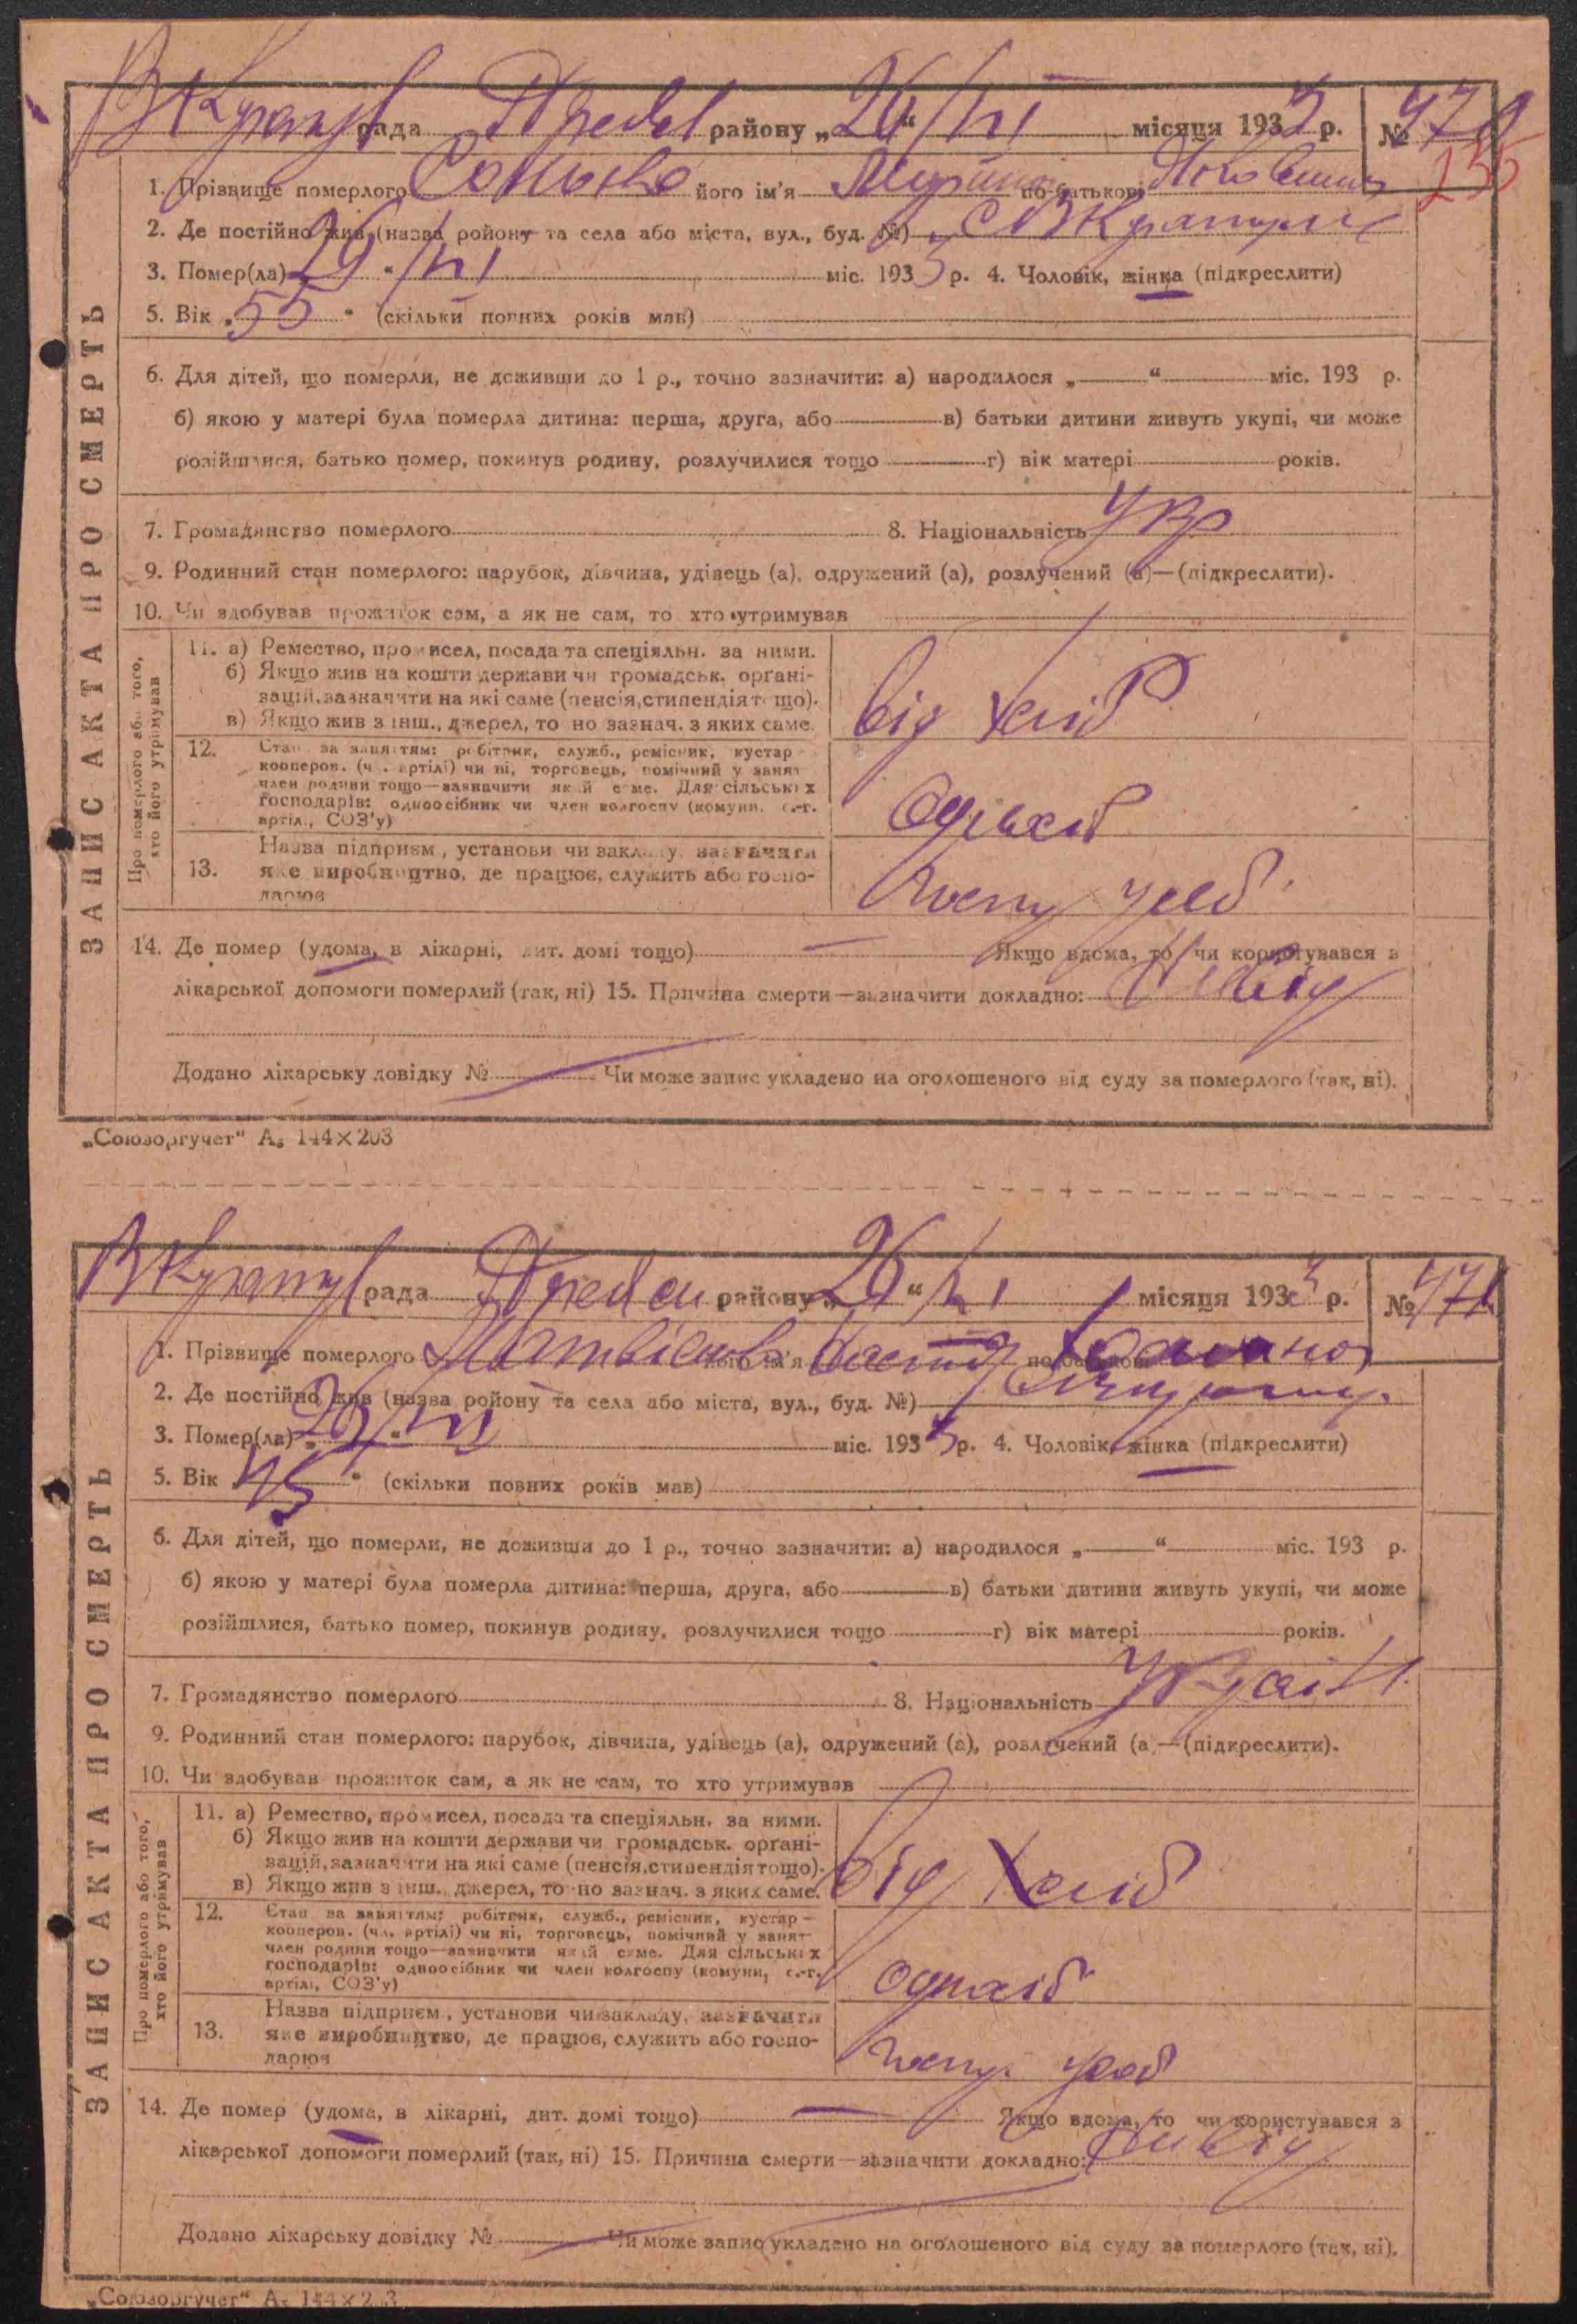 рада району „26“ VI місяця 1933 р. №
135
1. Прізвище померлого його ім'я по-батькові
2. Де постійно жив (назва ройону та села або міста, вул., буд. №)
3. Помер(ла) міс. 1933 р. 4. Чоловік, жінка (підкреслити)
5. Вік „55“ (скільки повних років мав)
6. Для дітей, що померли, не доживши до 1 р., точно зазначити: а) народилося „ “ міс. 193 р.
б) якою у матері була померла дитина: перша, друга, або в) батьки дитини живуть укупі, чи може
розійшлися, батько помер, покинув родину, розлучилися тощо г) вік матері років.
7. Громадянство померлого 8. Національність Укр
9. Родинний стан померлого: парубок, дівчина, удівець (а), одружений (а), розлучений (а)—(підкреслити).
10. Чи здобував прожиток сам, а як не сам, то хто утримував
ЗАПИС АКТА ПРО СМЕРТЬ
Про померлого або того, хто його утримував
11. а) Ремество, промисел, посада та спеціяльн. за ними.
б) Якщо жив на кошти держави чи громадськ. органі-
зацій, зазначити на які саме (пенсія, стипендія тощо).
в) Якщо жив з інш., джерел, то но зазнач. з яких саме.
від хліб
12. Стан за заняттям: робітник, служб., ремісник, кустар—
кооперов. (чл. артілі) чи ні, торговець, помічний у занят
член родини тощо—зазначити який саме. Для сільських
господарів: одноосібник чи член колгоспу (комуни, с.-г.
артіл., СОЗ'у)
13. Назва підприєм., установи чи закладу, зазначити
яке виробництво, де працює, служить або госпо-
дарює
14. Де помер (удома, в лікарні, дит. домі тощо) — Якщо вдома, то чи користувався з
лікарської допомоги померлий (так, ні) 15. Причина смерти—зазначити докладно:
Додано лікарську довідку № Чи може запис укладено на оголошеного від суду за померлого (так, ні).
„Союзоргучет“ А₅ 144×203
рада району „26“ VI місяця 1933 р. № 471
1. Прізвище померлого його ім'я по-батькові
2. Де постійно жив (назва ройону та села або міста, вул., буд. №)
3. Помер(ла) „26“ VI міс. 1933 р. 4. Чоловік, жінка (підкреслити)
5. Вік 45 “ (скільки повних років мав)
6. Для дітей, що померли, не доживши до 1 р., точно зазначити: а) народилося „ “ міс. 193 р.
б) якою у матері була померла дитина: перша, друга, або в) батьки дитини живуть укупі, чи може
розійшлися, батько помер, покинув родину, розлучилися тощо г) вік матері років.
7. Громадянство померлого 8. Національність
9. Родинний стан померлого: парубок, дівчина, удівець (а), одружений (а), розлучений (а)—(підкреслити).
10. Чи здобував прожиток сам, а як не сам, то хто утримував
ЗАПИС АКТА ПРО СМЕРТЬ
Про померлого або того, хто його утримував
11. а) Ремество, промисел, посада та спеціяльн. за ними.
б) Якщо жив на кошти держави чи громадськ. органі-
зацій, зазначити на які саме (пенсія, стипендія тощо).
в) Якщо жив з інш., джерел, то но зазнач. з яких саме.
від хліб
12. Стан за заняттям: робітник, служб., ремісник, кустар—
кооперов. (чл. артілі) чи ні, торговець, помічний у занят—
член родини тощо—зазначити який саме. Для сільських
господарів: одноосібник чи член колгоспу (комуни, с.-г.
артіл., СОЗ'у)
13. Назва підприєм., установи чи закладу, зазначити
яке виробництво, де працює, служить або госпо-
дарює
14. Де помер (удома, в лікарні, дит. домі тощо) — Якщо вдома, то чи користувався з
лікарської допомоги померлий (так, ні) 15. Причина смерти—зазначити докладно:
Додано лікарську довідку № Чи може запис укладено на оголошеного від суду за померлого (так, ні).
„Союзоргучет“ А₅ 144×203